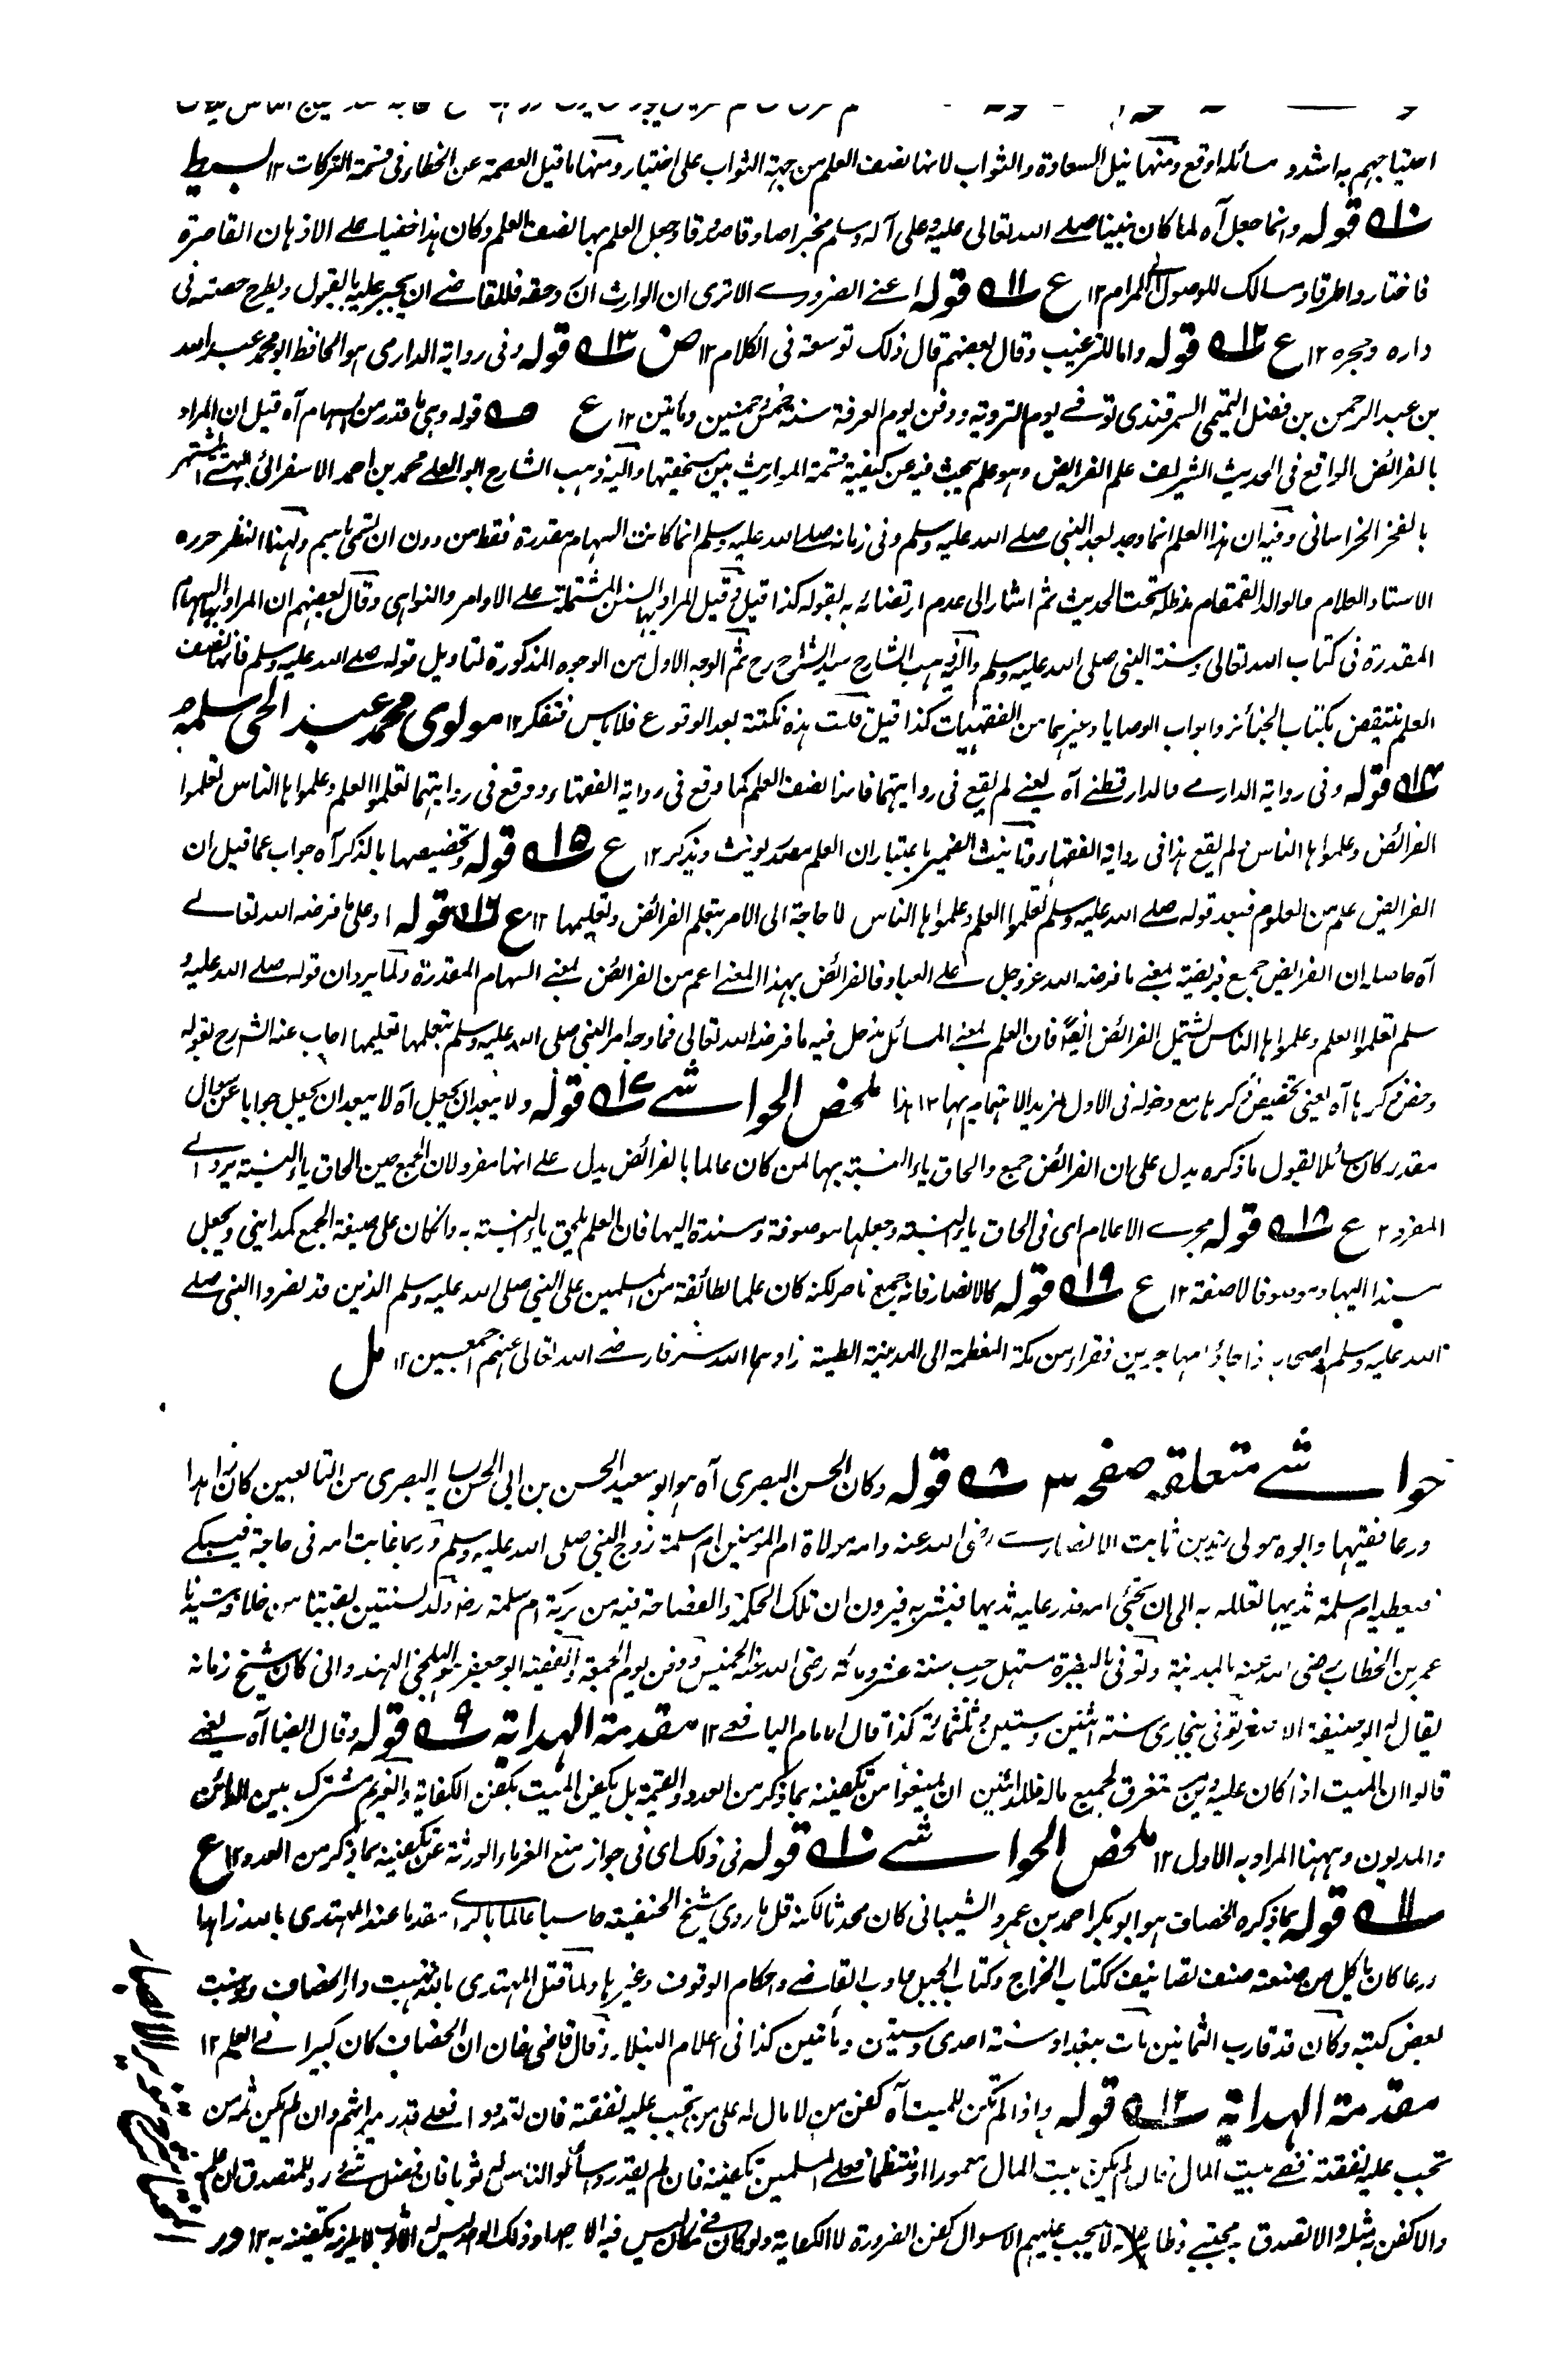 احتياجهم به اشد و مسائله اوقع ومنها نيل السعادة والثواب لانها نصف العلم من جهة الثواب على اختيار ومنها ما قيل العصمة عن الخطاء فى قسمة التركات ١٢ بسيط
١٠ قوله وانما جعل آه لما كان نبينا صلے الله تعالى عليه وعلى آله وسلم مخبرا صادقا مصدوقا وجعل العلم بها نصف العلم وكان هذا خفيا على الاذهان القاصرة
فاختاروا طرقا ومسالك للوصول الى المرام ١٢ ع ١١ قوله اعنے الضرورے الا ترى ان الوارث ان رد حقه فللقاضے ان يجبر عليه بالقبول ويطرح حصته فى
داره وحجره ١٢ ع ١٢ قوله واما للترغيب وقال بعضهم قال ذلك توسعة فى الكلام ١٢ ض ١٣ قوله وفى رواية الدارمى هو الحافظ ابو محمد عبد الله
بن عبد الرحمن بن فضل التميمى السمرقندى توفے يوم التروية ودفن يوم العرفة سنة خمس وخمسين ومأتين ١٢ ع قوله وهى ما قدر من السهام آه قيل ان المراد
بالفرائض الواقع فى الحديث الشريف علم الفرايض وهو علم يبحث فيه عن كيفية قسمة المواريث بين مستحقيها واليه ذهب الشارح ابو العلے محمد بن احمد الاسفرائى البهشتے المشتهر
بالفخر الخراسانى وفيه ان هذا العلم انما وجد بعد النبى صلے الله عليه وسلم وفى زمانه صلے الله عليه وسلم انما كانت السهام مقدرة فقط من دون ان تسمى باسم ولهذا النظر حرره
الاستاد العلام والوالد القمقام مدظله تحت الحديث ثم اشار الى عدم ارتضائه به بقوله كذا قيل وقيل المراد بها السنن المشتملة على الاوامر والنواهى وقال بعضهم ان المراد بها السهام
المقدرة فى كتاب الله تعالى وسنة النبى صلى الله عليه وسلم واليه ذهب الشارح سيد الشراح رح ثم الوجه الاول من الوجوه المذكورة لتاويل قوله صلے الله عليه وسلم فانها نصف
العلم منتقض بكتاب الجنائز وابواب الوصايا وغيرهما من الفقهيات كذا قيل قلت هذه نكتة بعد الوقوع فلا باس فتفكر ١٢ مولوى محمد عبد الحى سلمه
١٤ قوله وفى رواية الدارے والدارقطنے آه يعنے لم يقع فى روايتهما فانها نصف العلم كما وقع فى رواية الفقهاء ووقع فى روايتهما تعلموا العلم وعلموا ها الناس تعلموا
الفرائض وعلموا ها الناس ولم يقع هذا فى رواية الفقهاء وتانيث الضمير باعتبار ان العلم مصدر يونث ويذكر ١٢ ع ١٥ قوله وتخصيصها بالذكر آه جواب عما قيل ان
الفرايض علم من العلوم فبعد قوله صلے الله عليه وسلم تعلموا العلم وعلموا ها الناس لا حاجة الى الامر بتعلم الفرائض وتعليمها ١٢ ع ١٦ قوله او على ما فرضه الله تعالے
آه حاصله ان الفرايض جمع فريضة بمعنے ما فرضه الله عز وجل على العباد فالفرائض بهذا المعنے اعم من الفرائض بمعنے السهام المقدرة ولما يرد ان قوله صلے الله عليه و
سلم تعلموا العلم وعلموا ها الناس يشتمل الفرائض ايضا فان العلم بمعنے المسائل يدخل فيه ما فرضه الله تعالى فما وجه امر النبى صلى الله عليه وسلم بتعلمها وتعليمها اجاب عنه الشارح بقوله
وخص ذكرها آه يعنى تخصيص ذكرها مع دخوله فى الاول لمزيد الاهتمام بها ١٢ هذا ملخص الحواشے ١٧ قوله ولا يبعد ان يجعل آه لا يبعد ان يجعل جوابا عن سوال
مقدر كان سائلا يقول ما ذكره يدل على ان الفرائض جمع والحاق ياء النسبة بها لمن كان عالما بالفرائض يدل على انها مفرد لان الجمع حين الحاق ياء النسبة يرد الے
المفرد ٢ ع ١٨ قوله مجرے الاعلام اى فى الحاق ياء النسبة وجعلها موصوفة ومسندة اليها فان العلم يلحق ياء النسبة به وان كان على صيغة الجمع كمداينى ويجعل
مسندا اليها وموصوفا لا صفة ١٢ ع ١٩ قوله كالانصار فانه جمع ناصر لكنه كان علما لطائفة من المسلمين على النبى صلى الله عليه وسلم الذين قد نصروا النبى صلے
الله عليه وسلم واصحابه اذا جاؤا مهاجرين فقراء من مكة المعظمة الى المدينة الطيبة زادهما الله شرفا رضے الله تعالى عنهم اجمعين ١٢ مل
حواشے متعلقہ صفحہ ٣ ٨ قوله وكان الحسن البصرى آه هو ابو سعيد الحسن بن ابى الحسن يسار البصرى من التابعين كان زاهدا
ورعا فقيها وابوه مولى زيد بن ثابت الانصارے رضى الله عنه وامه مولاة ام المومنين ام سلمة زوج النبى صلى الله عليه وسلم وربما غابت امه فى حاجة فيبكے
فتعطيه ام سلمة ثديها تعلله به الى ان تجئ امه فدر عليه ثديها فيشربه فيرون ان تلك الحكمة والفصاحة فيه من بركة ام سلمة رض ولد لسنتين بقيتا من خلافة سيدنا
عمر بن الخطاب رضى الله عنه بالمدينة وتوفى بالبصرة مستهل رجب سنة عشر ومائة رضى الله عنه الخميس ودفن يوم الجمعة والفقيه ابو جعفر هو البلخى الهندوانى كان شيخ زمانه
يقال له ابو حنيفة الاصغر توفى ببخارى سنة اثنين وستين وثلثمائة كذا قال الامام اليافعے ١٢ مقدمة الهداية ٩ قوله وقال ايضا آه يعنے
قالوا ان الميت اذا كان عليه دين مستغرق لجميع ماله فللدائنين ان يمنعوا من تكفينه بما ذكر من العدد والقيمة بل يكفن الميت بكفن الكفاية والغريم مشترك بين الدائن
والمديون وههنا المراد به الاول ١٢ ملخص الحواشے ١٠ قوله فى ذلك اى فى جواز منع الغرماء الورثة عن تكفينه بما ذكر من العدد ١٢ ع
١١ قوله بما ذكره الخصاف هو ابو بكر احمد بن عمرو الشيبانى كان محدثا لكنه قل ما روى شيخ الحنفية حاسبا عالما بالراے مقدما عند المهتدى بالله زاهدا
ورعا كان ياكل من صنعته صنف تصانيف ككتاب الخراج وكتاب الحيل وادب القاضے واحكام الوقوف وغيرها ولما قتل المهتدى بالله نهبت دار الخصاف وذهبت
بعض كتبه وكان قد قارب الثمانين مات ببغداد سنة احدى وستين ومأتين كذا فى اعلام النبلاء وقال قاضى خان ان الخصاف كان كبيرا فے العلم ١٢
مقدمة الهداية ١٢ قوله واذا لم تكن للميت آه كفن من لا مال له على من تجب عليه نفقته فان تعددوا فعلے قدر ميراثهم وان لم يكن ثمه من
تجب عليه نفقته ففے بيت المال فان لم يكن بيت المال معمورا او منتظما فعلے المسلمين تكفينه فان لم يقدروا سألوا الناس له ثوبا فان فضل شئے رد للمتصدق ان علم
والا كفن به مثله والا تصدق به مجتبے وظاهره انه لا يجب عليهم الا سوال كفن الضرورة لا الكفاية ولو كان فى مكان ليس فيه الا واحد وذلك الواحد ليس له الا ثوب لا يلزمه تكفينه به ١٢ در